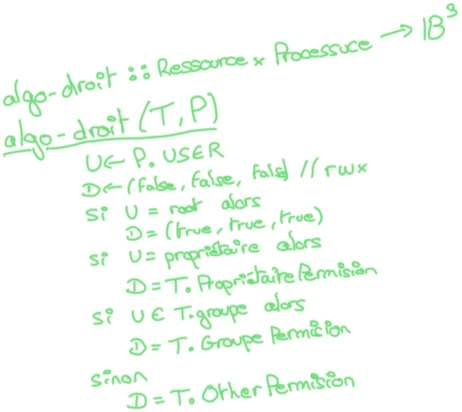 algo-droit :: Ressource × Processuce → IB³
algo-droit (T, P)
U ← P. USER
D ← (False, False, False) // rwx
si U = root alors
D = (true, true, true)
si U = propriétaire alors
D = T. PropriétairePermision
si U ∈ T.groupe alors
D = T. Groupe Permicion
sinon
D = T. Other Permision